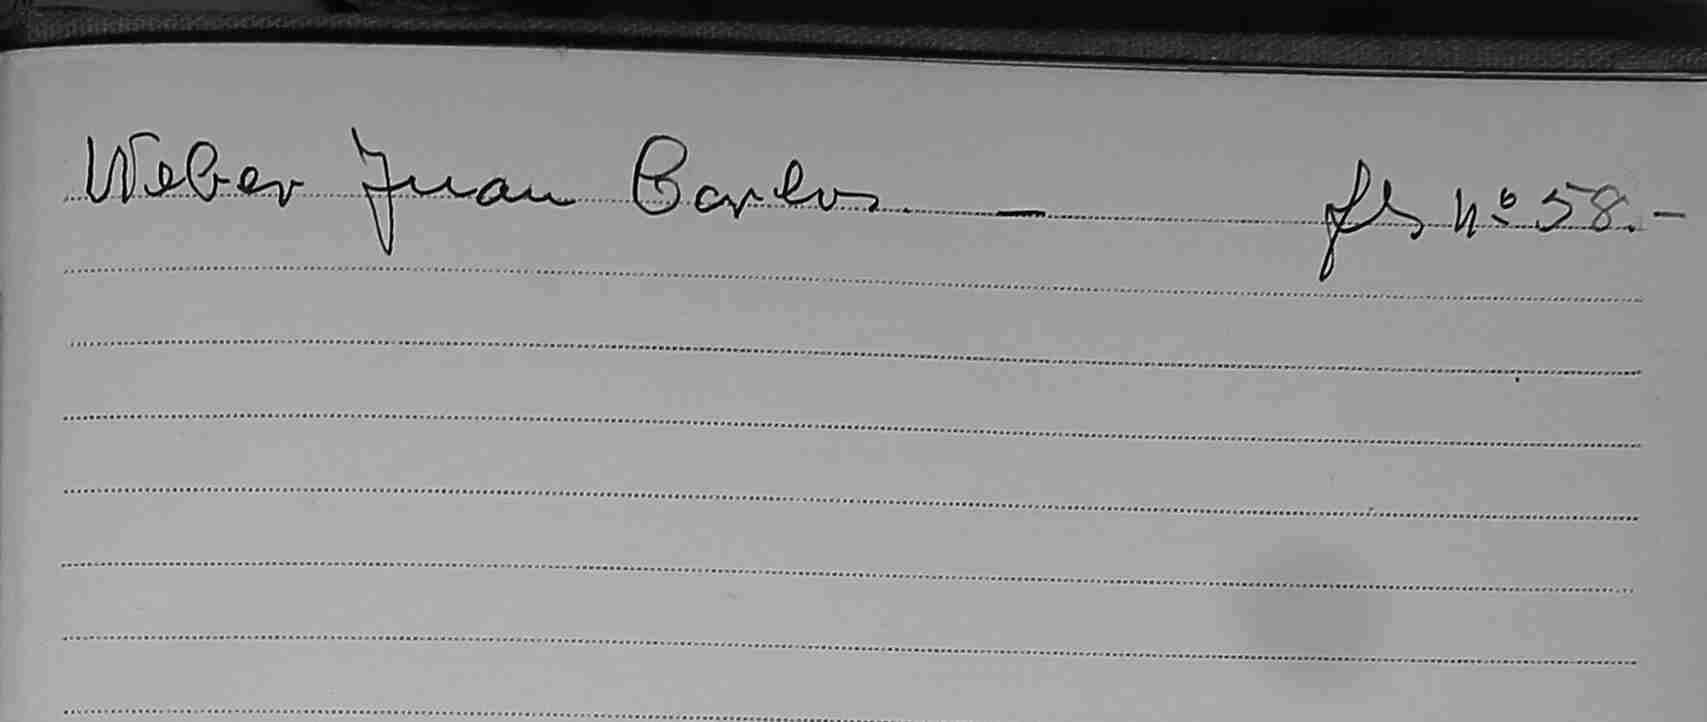 Weber Juan Carlos. — fls nº 58.-